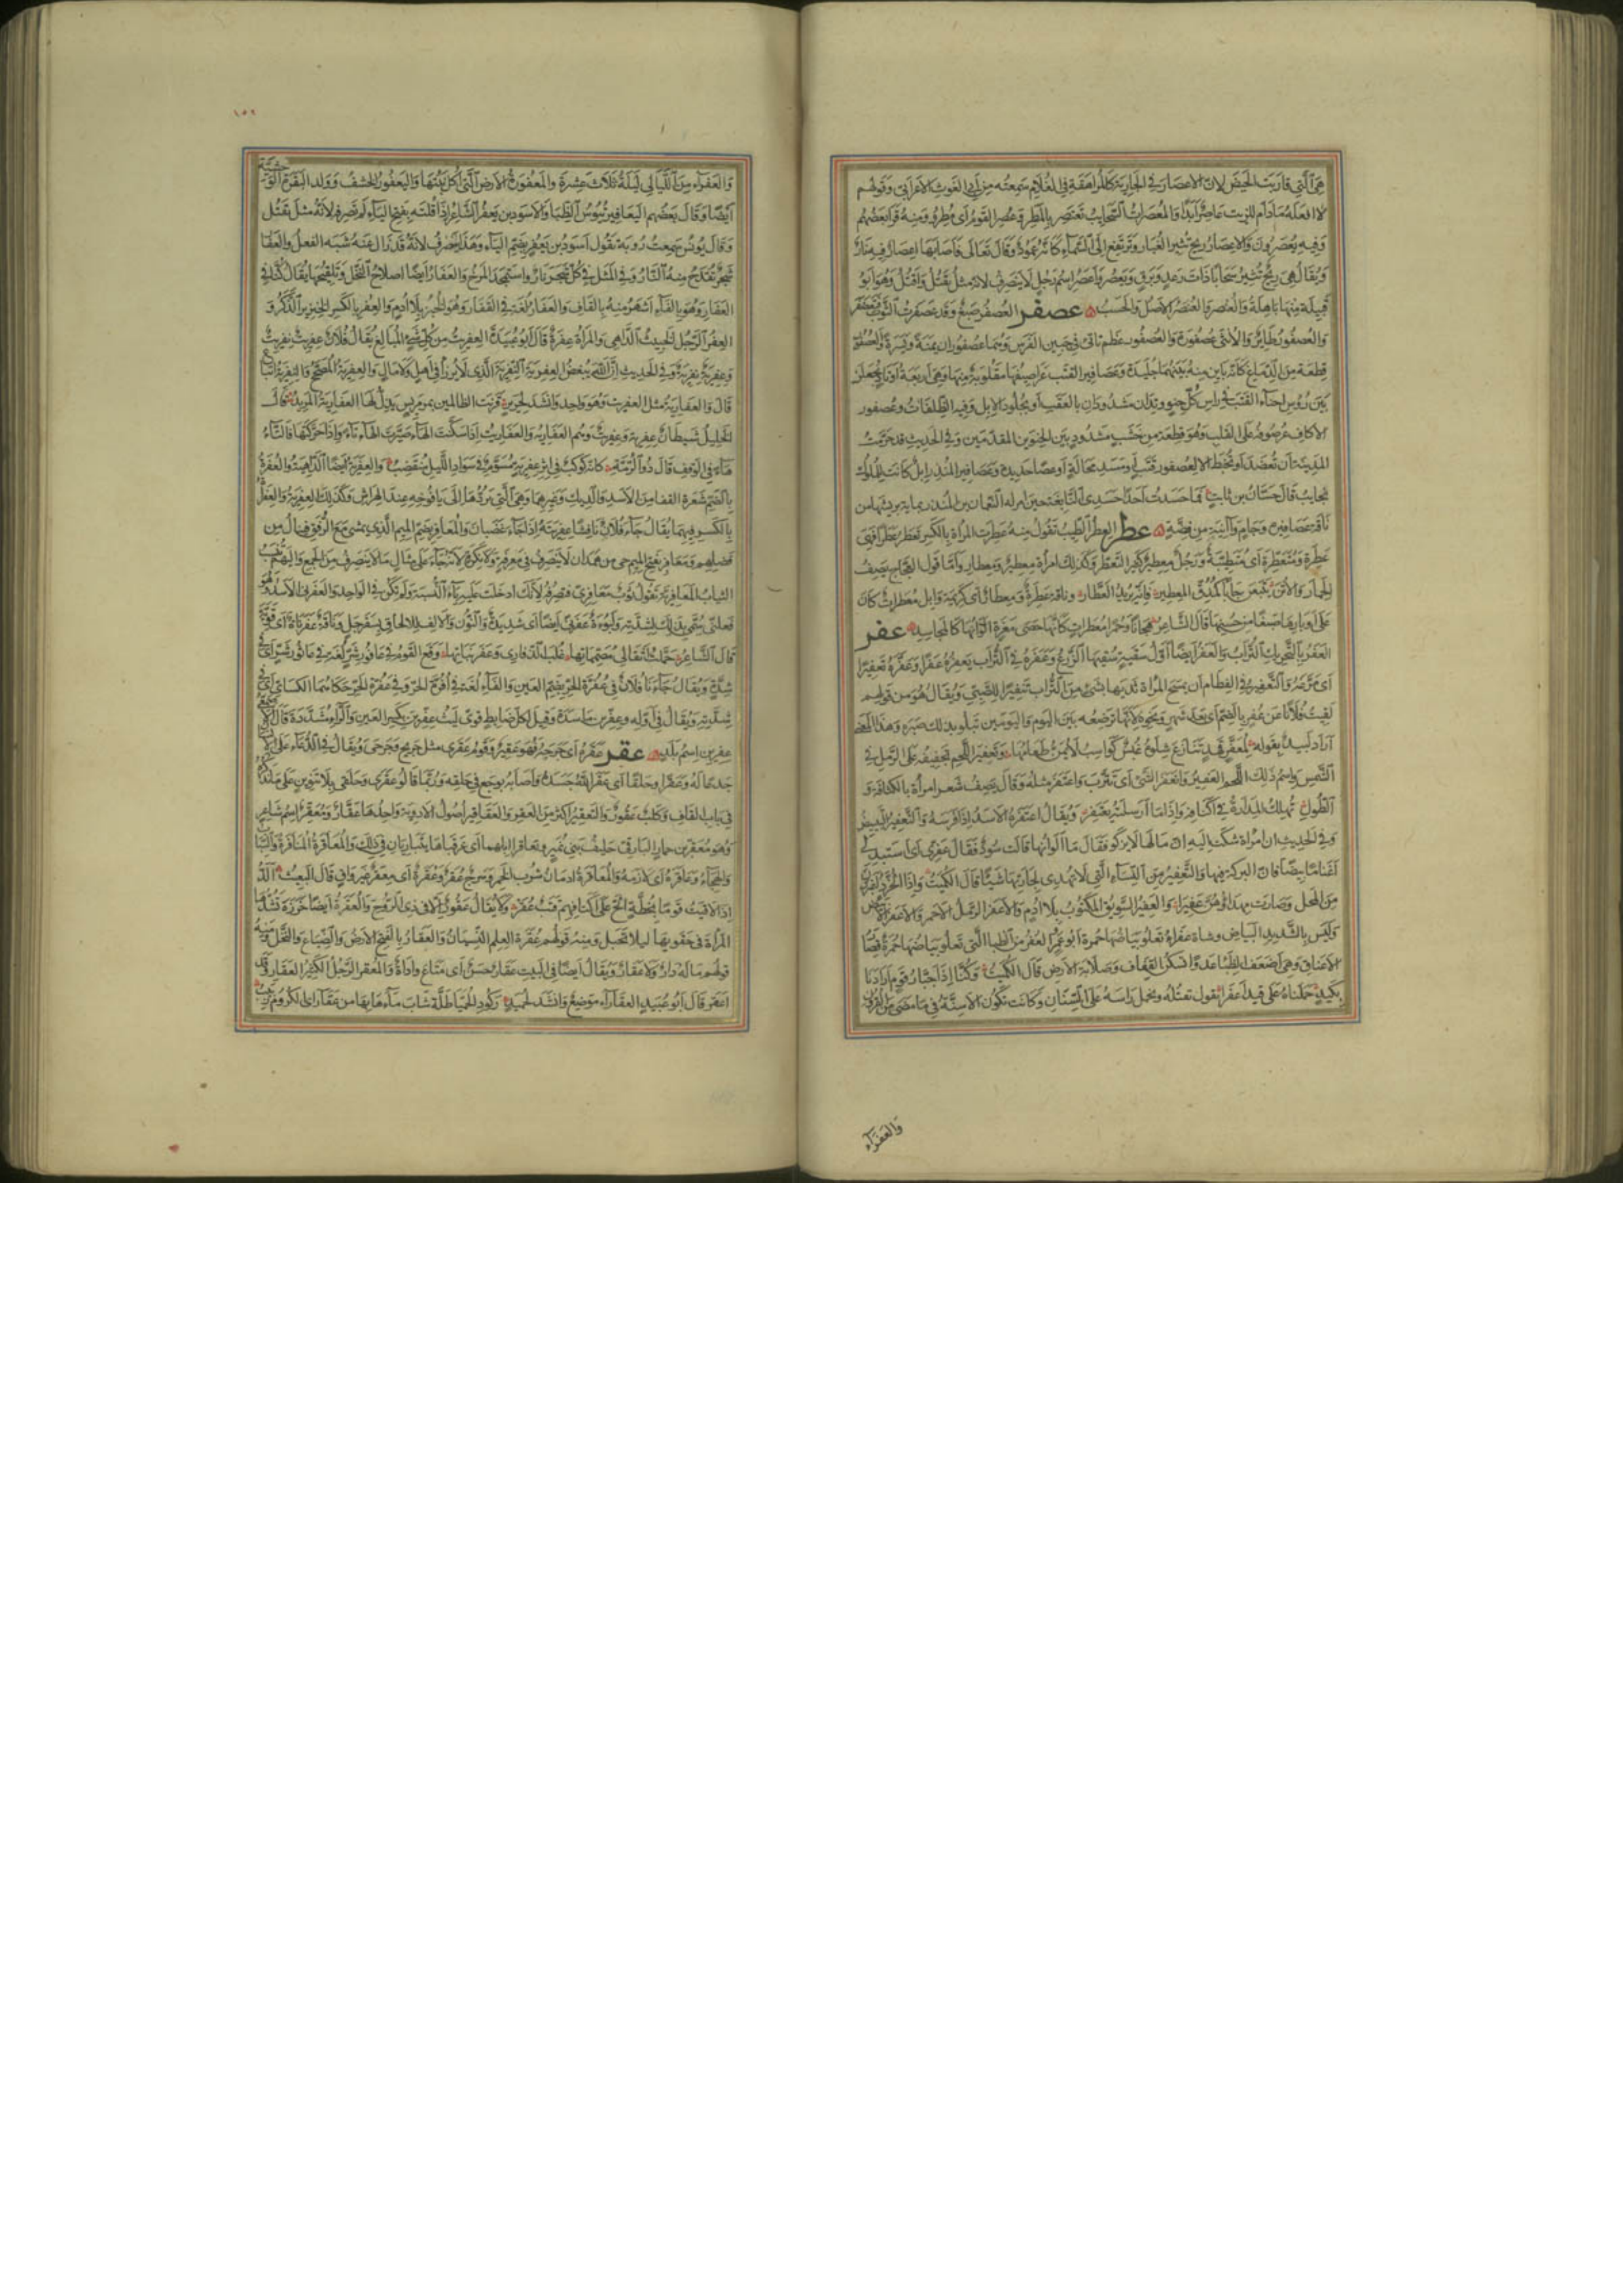 هي التي قاربت الحيض لان الاعصار في الجارية كالمراهقة في الغلام سمعته من ابي الغوث الاعرابي وقولهم
لا افعله مادام للزيت عاصر ابدا والمعصرات السحايب تعتصر بالمطر وعصر القوم اي مطروا ومنه قرا بعضهم
وفيه يعصرون والاعصار ريح تثير الغبار وترتفع الى السماء كانه عمود وقال تعالى فاصابها اعصار فيه نار
ويقال هي ريح تثير سحابا ذات رعد وبرق ويعصر واعصر اسم رجل لا ينصرف لانه مثل يقتل واقتل وهو ابو
قبيلة منها باهلة والعنصر والعنصر الاصل والحسب عصفر العصفر صبغ وقد عصفرت الثوب فتعصفر
والعصفور طاير والانثى عصفورة والعصفور عظم ناتئ في جبين الفرس وهما عصفوران يمنة ويسرة والعصفور
قطعة من الدماغ كانه باين منه بينهما جليدة وعصافير القتب عراصيفها مقلوبة منها وهي اربعة اوتاد يجعلن
بين رؤس احناء القتب في راس كل حنو وتدان مشدودان بالعقب او بجلود الابل وفيه الظلفات وعصفور
الاكاف عرصوفه على القلب وهو قطعة من خشب مشدود بين الحنوين المقدمين وفي الحديث قد حرمت
المدينة ان تعضد او تخبط الا لعصفور قتب او مسد محالة او عصا حديدة وعصافير المنذر ابل كانت للملوك
نجايب قال حسان بن ثابت فما حسدت احدا حسدي النابغة حين امر له النعمان بن المنذر بماية بريشها من
ناقة عصافيره وجام وآنية من فضة عطر العطر الطيب تقول منه عطرت المراة بالكسر تعطر عطرا فهي
عطرة ومتعطرة اي متطيبة ورجل معطير كثير التعطر وكذلك امراة معطير ومعطار واما قول العجاج يصف
الحمار والاتن يتبعن جابا كمدق المعطير فانه يريد العطار وناقة عطرة ومعطار اي كريمة وابل معطرات كان
على اوبارها صبغا من حسنها قال الشاعر هجانا وحمرا معطرات كانها حصى مغرة الوانها كالمجاسد عفر
العفر بالتحريك التراب والعفر ايضا اول سقية سقيها الزرع وعفره في التراب يعفره عفرا وعفره تعفيرا
اي مرغه والتعفير في الفطام ان تمسح المراة ثديها بشئ من التراب تنفيرا للصبي ويقال هو من قولهم
لقيت فلانا عن عفر بالضم اي بعد شهر ونحوه لانها ترضعه بين اليوم واليومين تبلو بذلك صبره وهذا المعنى
اراد لبيد بقوله لمعفر قهد تنازع شلوه غبس كواسب لا يمن طعامها وتعفير اللحم تجفيفه على الرمل في
الشمس واسم ذلك اللحم العفير وانعفر الشئ اي تترب واعتفر مثله وقال يصف شعر امراة بالكثافة و
الطول تهلك المدراة في اكنافه واذا ما ارسلته يعتفر ويقال اعتفره الاسد اذا فرسه والتعفير التبييض
وفي الحديث ان امراة شكت اليه ان مالها لا يزكو فقال ما الوانها قالت سود فقال عفري اي استبدلي
اغناما بيضا فان البركة فيها والتعفير من النساء التي لا تهدي لجارتها شيئا قال الكميت واذا الخرد اغبررن
من المحل وصارت مهداوهن عفيرا والعفير السويق الملتوت بلا ادم والاعفر الرمل الاحمر والاعفر الابيض
وليس بالشديد البياض وشاة عفراء تعلو بياضها حمرة ابو عمرو العفر من الظباء التي تعلو بياضها حمرة قصار
الاعناق وهي اضعف الظباء عدوا تسكن القفاف وصلابة الارض قال الكميت وكنا اذا جبار قوم ارادنا
بكيد حملناه على قرن اعفرا يقول نقتله ونحمل راسه على السنان وكانت تكون الاسنة في ما مضى من القرون
والعفراء
١٥٢
والعفراء من الليالي ليلة ثلاث عشرة والمعفورة الارض التي اكل نبتها واليعفور الخشف وولد البقرة الوحشية
ايضا وقال بعضهم اليعافير تيوس الظباء والاسود بن يعفر الشاعر اذا قلته بفتح الياء لم تصرفه لانه مثل يقتل
وقال يونس سمعت رؤبة يقول اسود بن يعفر بضم الياء وهذا ينصرف لانه قد زال عنه شبه الفعل والعفار
شجر تقدح منه النار وفي المثل في كل شجر نار واستمجد المرخ والعفار والعفار ايضا اصلاح النخل وتلقيحها يقال كنا في
العفار وهو بالفاء اشهر منه بالقاف والعفار لغة في القفار وهو الخبز بلا ادم والعفر بالكسر الخنزير الذكر و
العفر الرجل الخبيث الداهي والمراة عفرة قال ابو عبيدة العفريت من كل شئ المبالغ يقال فلان عفريت نفريت
وعفرية نفرية وفي الحديث ان الله يبغض العفرية النفرية الذي لا يرزا في اهل ولا مال والعفرية المصحح والنفرية اتباع
قال والعفارية مثل العفريت وهو واحد وانشد لجرير قرنت الظالمين بمرمريس يذل لها العفارية المريد قال
الخليل شيطان عفرية وعفريت وهم العفارية والعفاريت اذا سكنت الهاء صيرت الهاء تاء واذا حركتها فالتاء
هاء في الوقف قال ذو الرمة كانه كوكب في اثر عفرية مسوم في سواد الليل منقضب والعفرية ايضا الداهية والعفرة
بالضم شعرة القفا من الاسد والديك وغيرهما وهي التي يردها الى يافوخه عند الهراش وكذلك العفرية والعفراة
بالكسر فيهما يقال جاء فلان نافشا عفريته اذا جاء غضبان والمعافر بضم الميم الذي يمشي مع الرفق فينال من
فضلهم ومعافر بفتح الميم حي من همدان لا ينصرف في معرفة ولا نكرة لانه جاء على مثال ما لا ينصرف من الجمع واليهم تنسب
الثياب المعافرية تقول ثوب معافري فتصرفه لانك ادخلت عليه ياء النسبة ولم تكن في الواحد والعفرنى الاسد وهو
فعلنى سمي بذلك لشدته ولبوءة عفرنى ايضا اي شديدة والنون والالف للالحاق بسفرجل وناقة عفرناة اي قوية
قال الشاعر حملت اثقالي مصمماتها غلب الذفارى وعفرنياتها ووقع القوم في عافور شر لغة في عاثور شر اي في
شدة ويقال جاءنا فلان في عفرة الحر بضم العين والفاء لغة في افرة الحر وفي عفرة الحر حكاهما الكسائي اي في
شدته ويقال في اوله وعفرين ماسدة وقيل لكل ضابط قوي ليث عفرين بكسر العين والراء مشددة قال الاصمعي
عفرين اسم بلد عقر عقره اي جرحه فهو عقير وقوم عقرى مثل جريح وجرحى ويقال في الدعاء على الانسان
جدعا له وعقرا وحلقا اي عقر الله جسده واصابه بوجع في حلقه وربما قالوا عقرى وحلقى بلا تنوين على ما نذكره
في باب القاف وكلب عقور والتعقير اكثر من العقر والعقاقير اصول الادوية واحدها عقار ومعقر اسم شاعر
وهو معقر بن حمار البارقي حليف بني نمير وتعاقرا ابلهما اي عرقباها يتباريان في ذلك والمعاقرة المنافرة والسباب
والهجاء وعاقره اي لازمه والمعاقرة ادمان شرب الخمر وسرج عقر وعقرة اي معقر غير واق قال البعيث الد
اذا لاقيت قوما بخطة الح على اكتافهم قتب عقر ولا يقال عقور الا في ذي الروح والعقرة ايضا خرزة تشدها
المراة في حقويها ليلا تحبل ومنه قولهم عقرة العلم النسيان والعقار بالفتح الارض والضياع والنخل ومنه
قولهم ماله دار ولا عقار ويقال ايضا في البيت عقار حسن اي متاع واداة والمعقر الرجل الكثير العقار وقد
اعقر قال ابو عبيد العقاراء موضع وانشد لحميد ركود الحميا طلة شاب ماءها بها من عقاراء الكروم ربيب